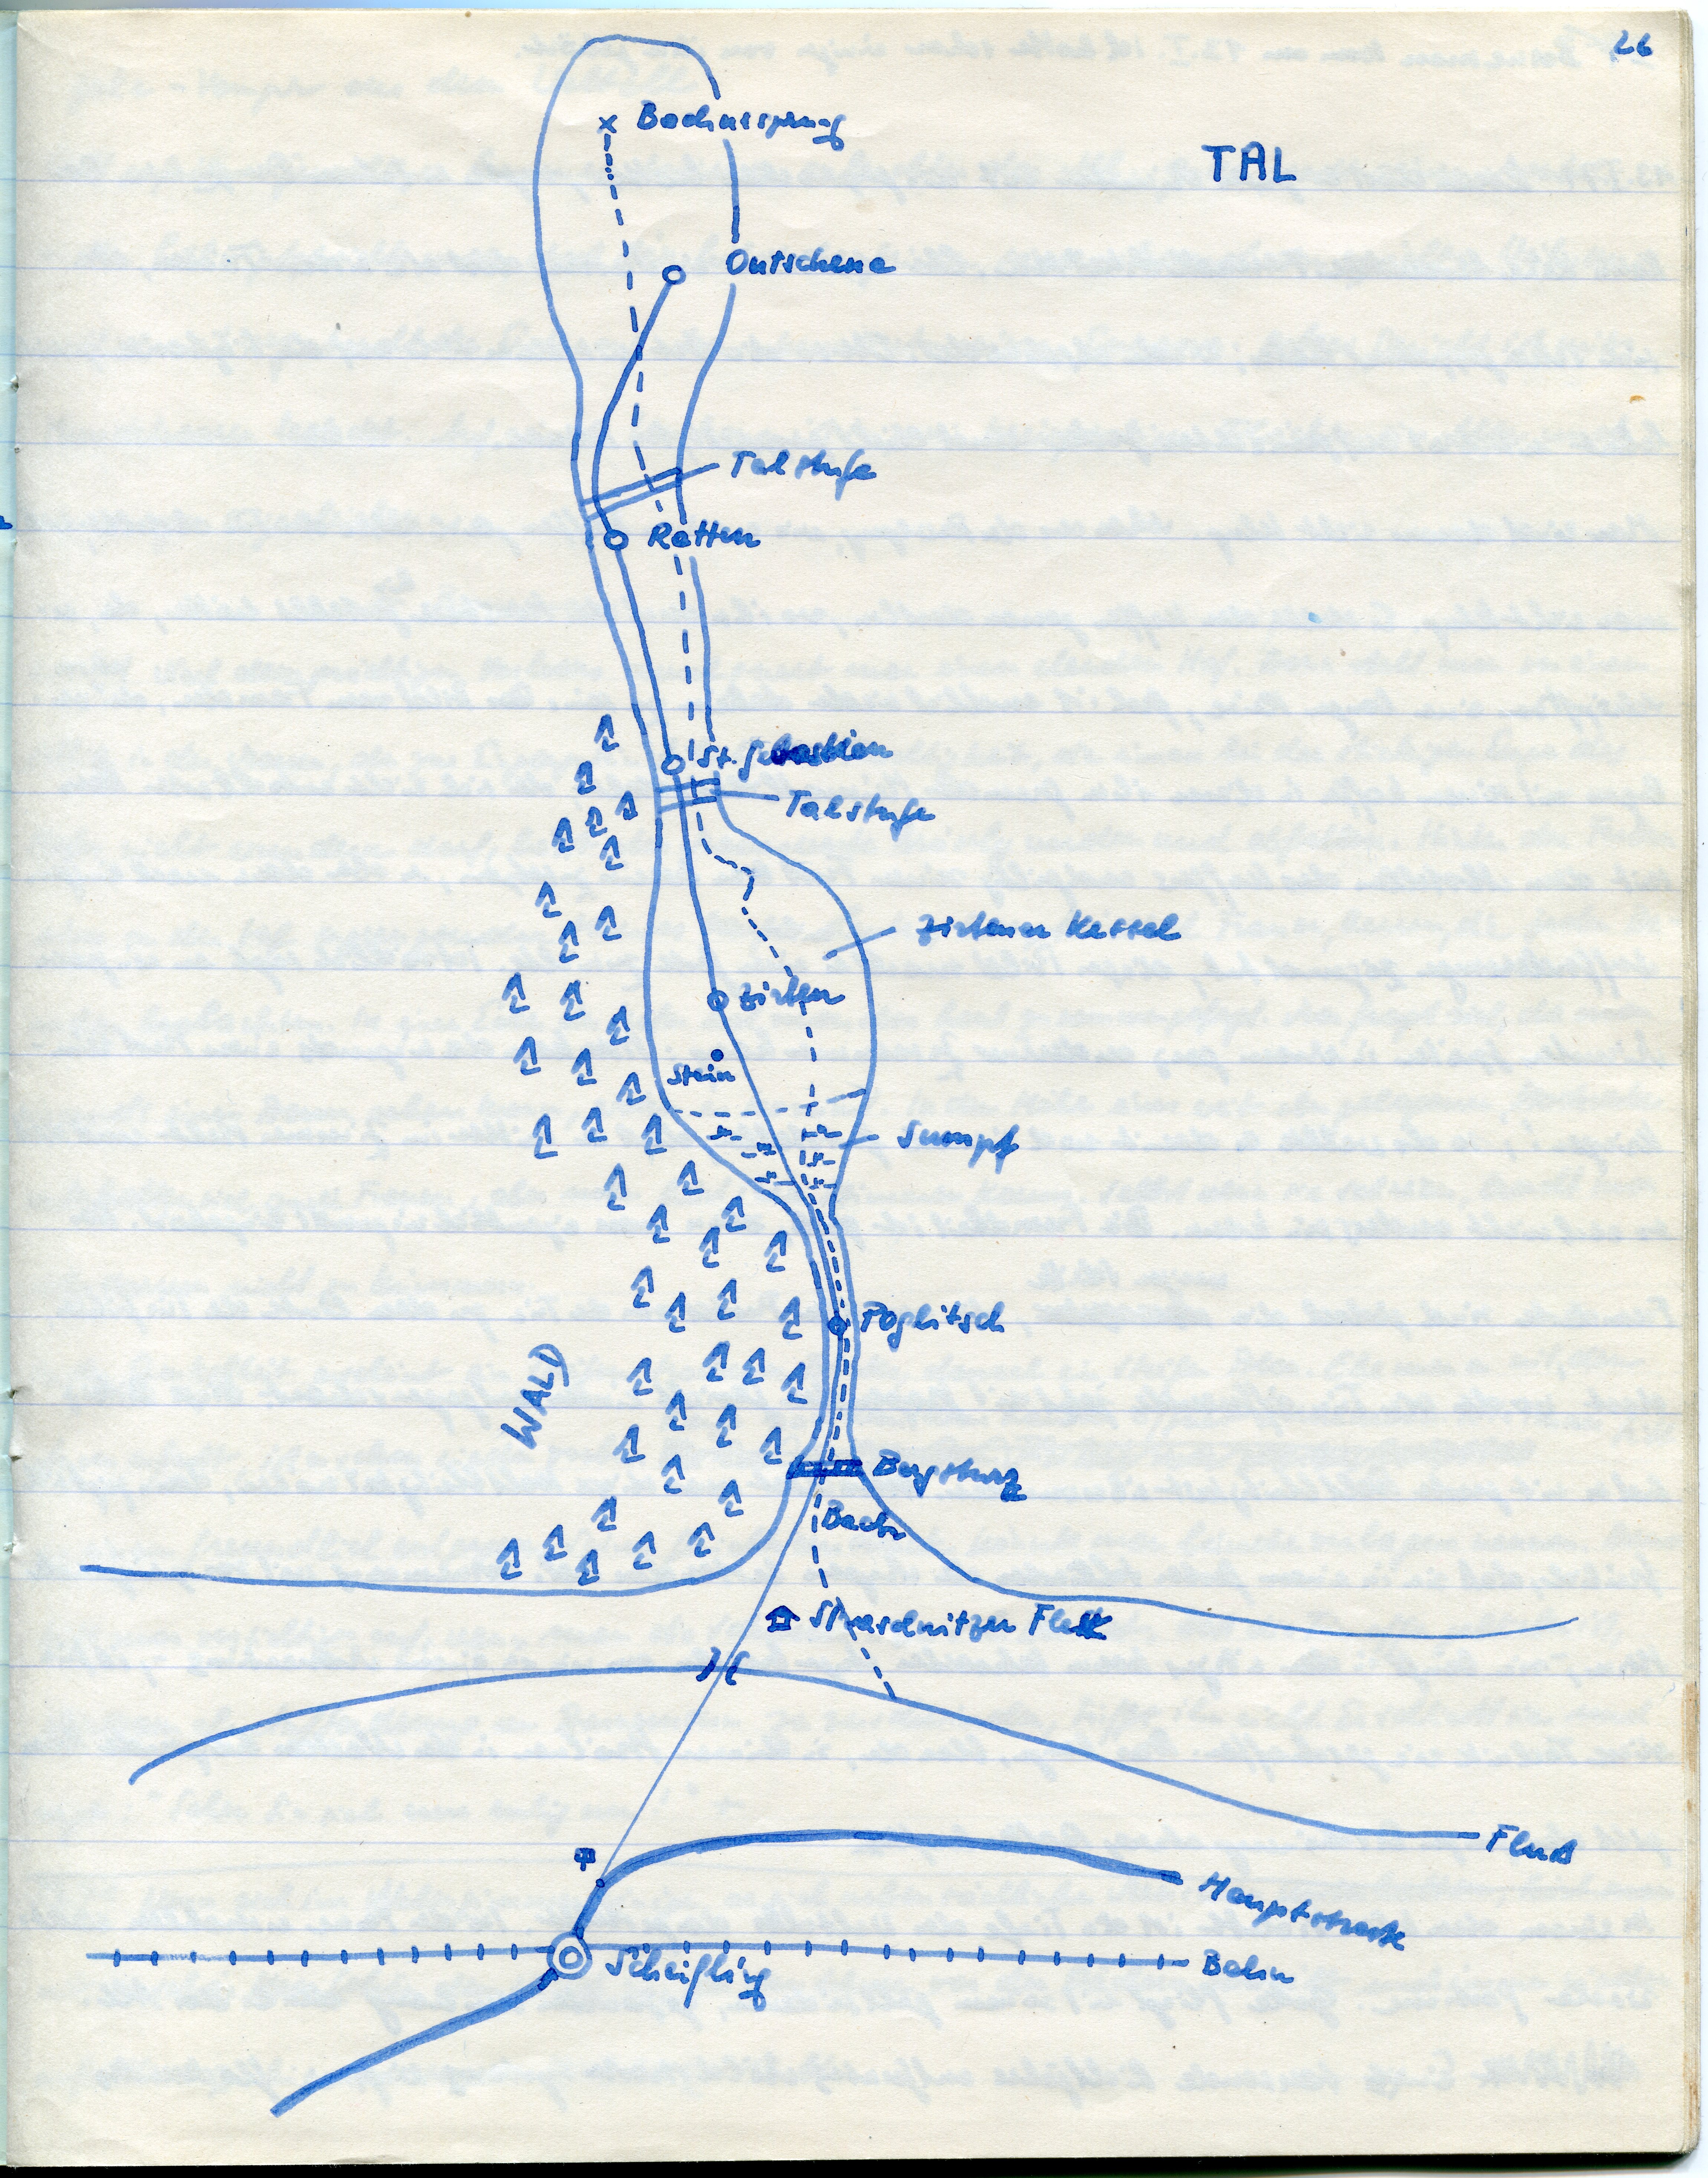 26
TAL
Bachursprung
Ontschena
Talstufe
Retten
St. Sebastian
Talstufe
Zirtener Kessel
Zirten
Stein
Sumpf
Poglitsch
WALD
Bergsturz
Bach
Straschnitzer
Fluß
Hauptstraße
Scheifling
Bahn